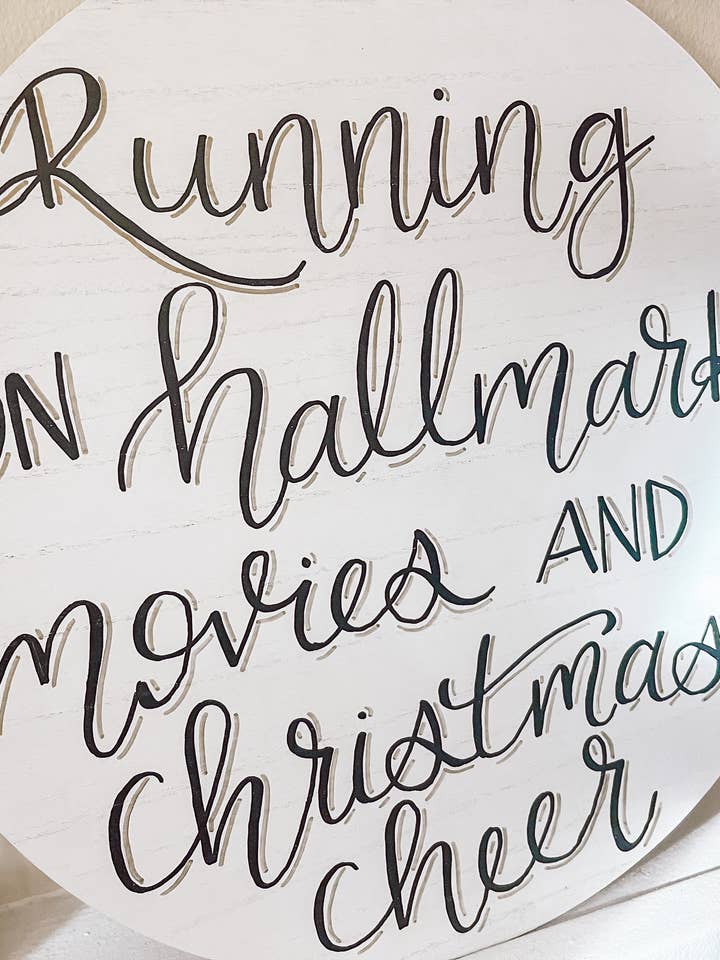 Running
ON hallmark
movies AND
christmas
cheer